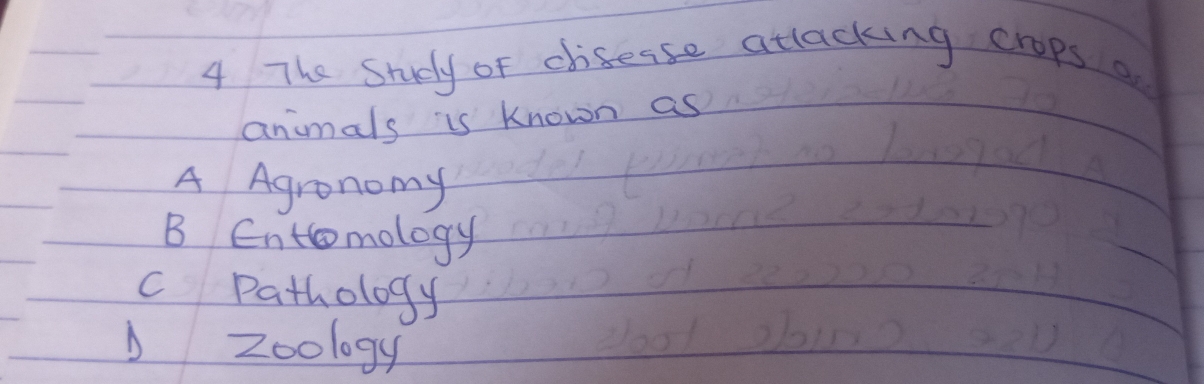 4 The Study of disease attacking crops
animals is known as
A Agronomy
B Entomology
C Pathology
D Zoology